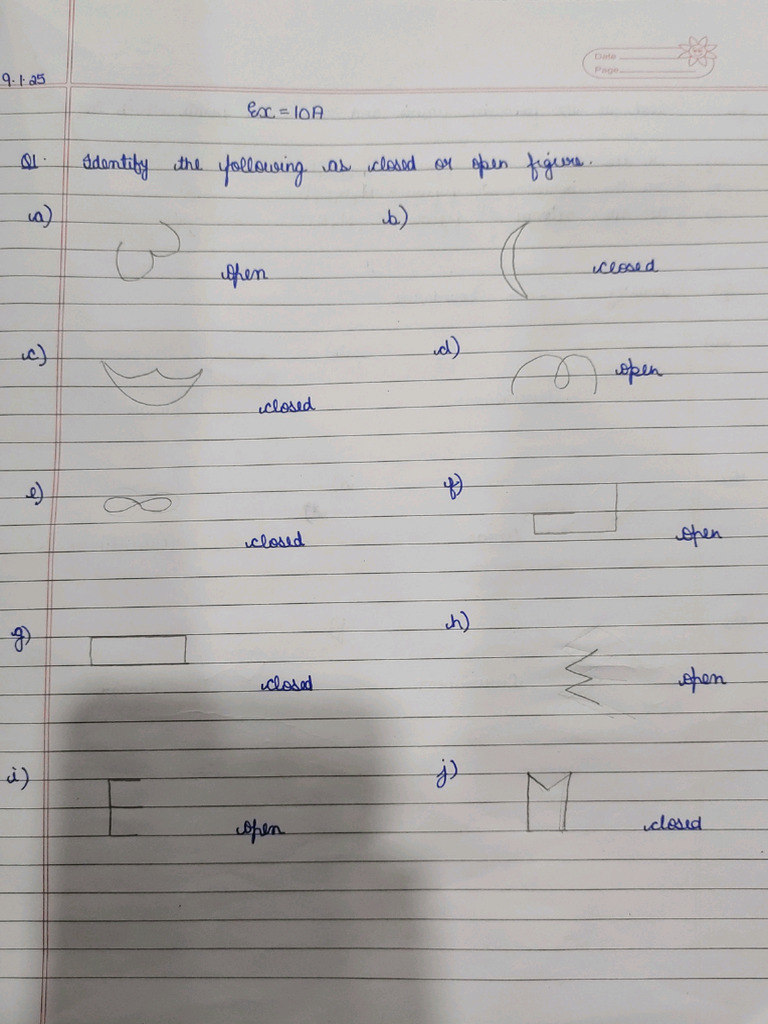 Date
Page
9.1.25
Ex = 10A
Q1. Identify the following as closed or open figure.
a) open b) closed
c) closed d) open
e) closed f) open
g) closed h) open
i) open j) closed